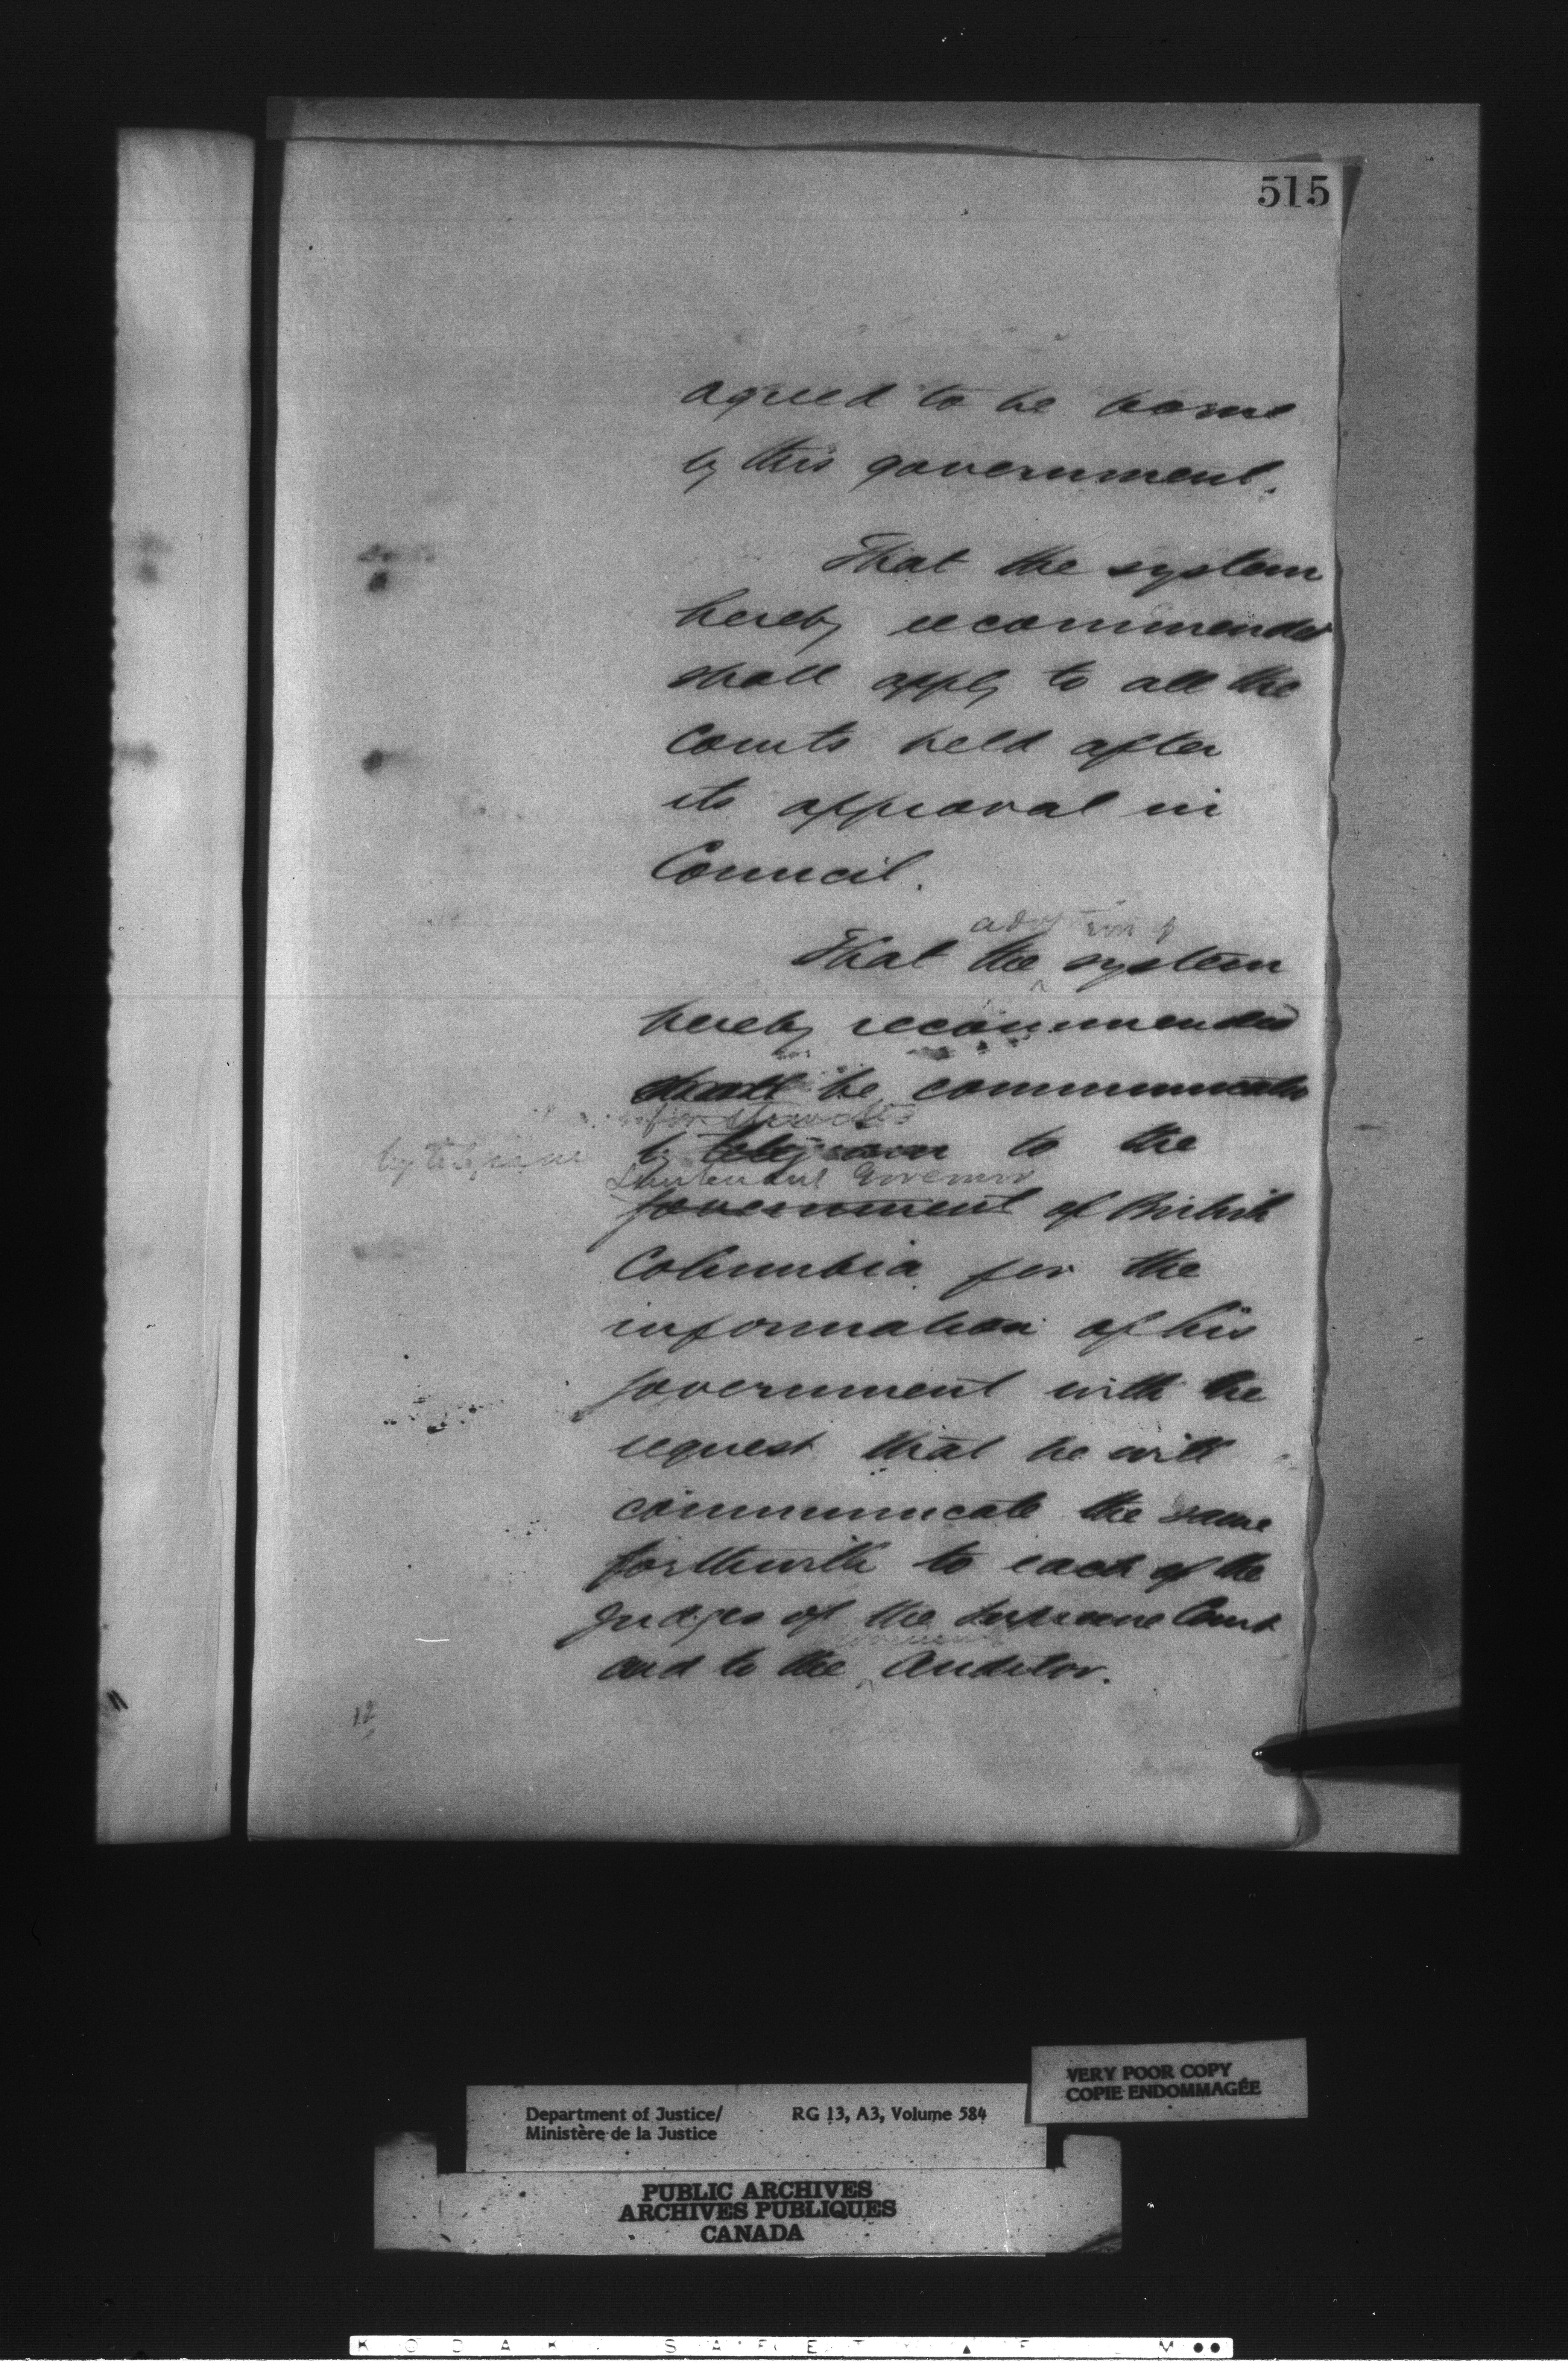 515
agreed to be borne
by this government.
That the system
hereby recommended
shall apply to all the
Courts held after
its approval in
Council.
adoption of
That the ^ system
hereby recommended
shall be communicated
by telegram
by telegram to the
Lieutenant Governor
Government of British
Columbia for the
information of his
Government with the
request that he will
communicate the same
forthwith to each of the
Judges of the Supreme Court
and to the ^ Auditor.
12
Department of Justice/
Ministère de la Justice
RG 13, A3, Volume 584
VERY POOR COPY
COPIE ENDOMMAGÉE
PUBLIC ARCHIVES
ARCHIVES PUBLIQUES
CANADA
KODAK SAFETY FILM